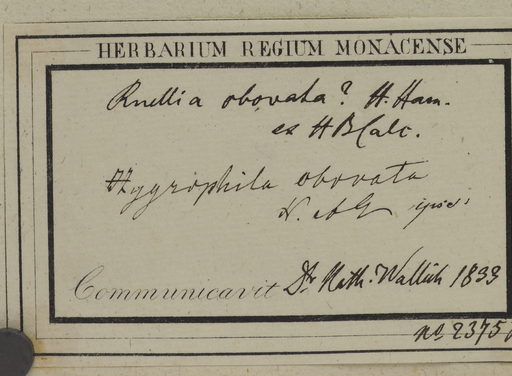 HERBARIUM REGIUM MONACENSE
Ruellia obovata? H. Ham.
ex H B Calc.
Hygrophila obovata
N. ab
Communicavit Dr. Nath. Wallich 1833
no. 2375